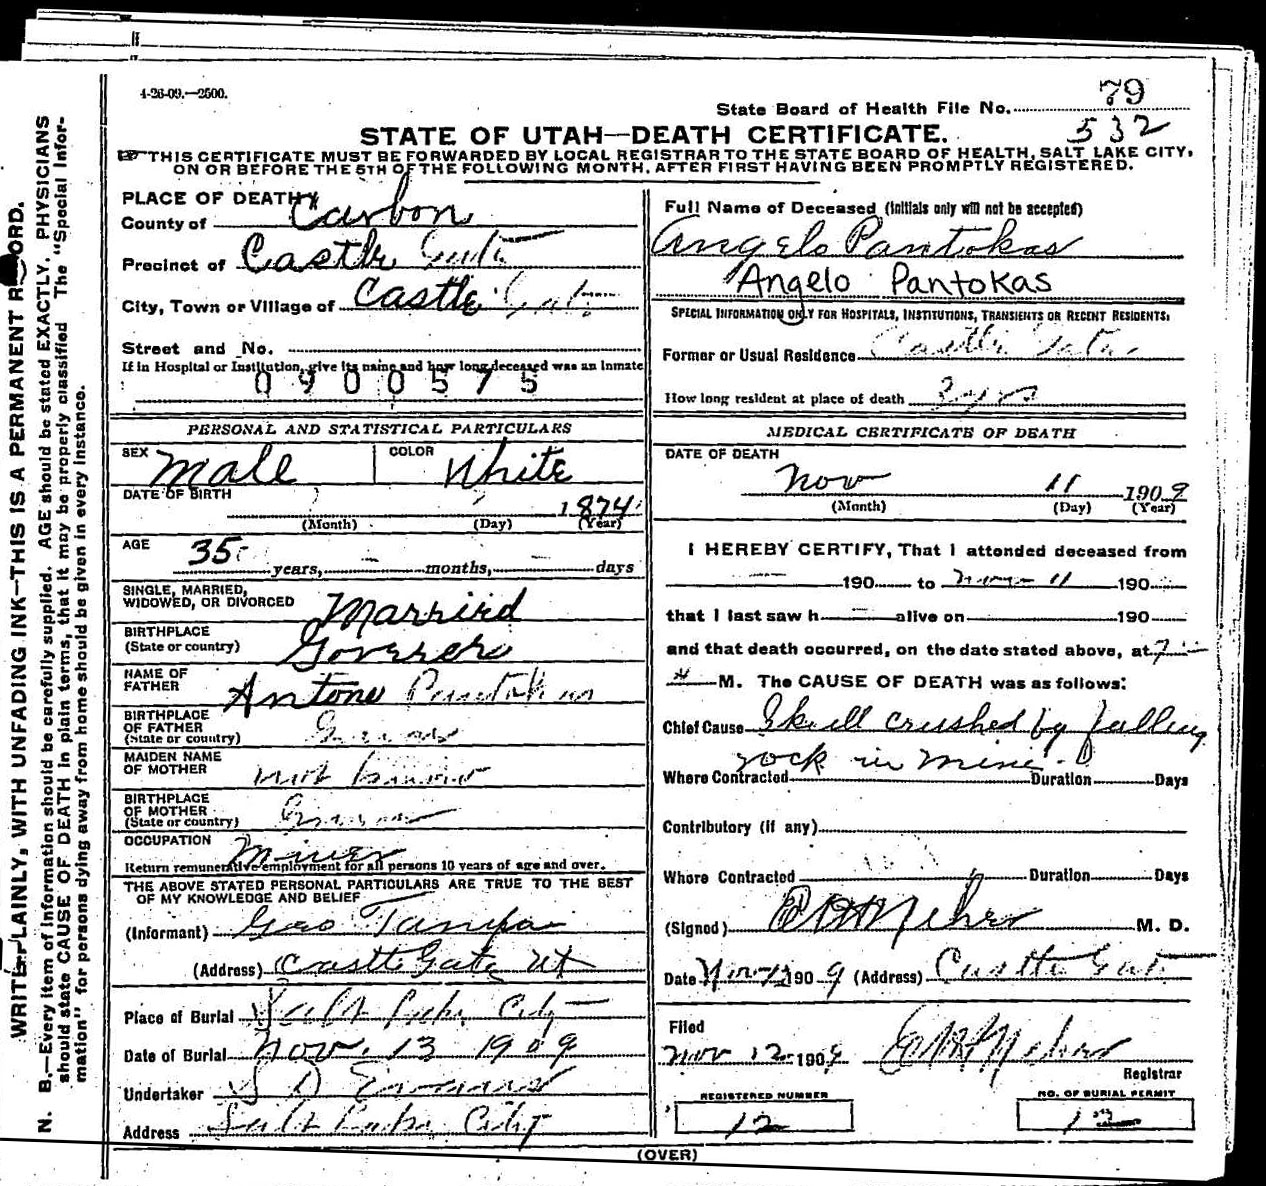 4-26-09.—2500.
State Board of Health File No. 79
532
STATE OF UTAH—DEATH CERTIFICATE.
THIS CERTIFICATE MUST BE FORWARDED BY LOCAL REGISTRAR TO THE STATE BOARD OF HEALTH, SALT LAKE CITY,
ON OR BEFORE THE 5TH OF THE FOLLOWING MONTH, AFTER FIRST HAVING BEEN PROMPTLY REGISTERED.
WRITE PLAINLY, WITH UNFADING INK—THIS IS A PERMANENT RECORD.
N. B.—Every item of information should be carefully supplied. AGE should be stated EXACTLY. PHYSICIANS
should state CAUSE OF DEATH in plain terms, that it may be properly classified. The "Special Infor-
mation" for persons dying away from home should be given in every instance.
PLACE OF DEATH
County of Carbon
Precinct of Castle Gate
City, Town or Village of Castle Gate
Street and No.
If in Hospital or Institution, give its name and how long deceased was an inmate
0900575
PERSONAL AND STATISTICAL PARTICULARS
SEX Male COLOR White
DATE OF BIRTH 1874
(Month) (Day) (Year)
AGE 35 years, — months, — days
SINGLE, MARRIED,
WIDOWED, OR DIVORCED Married
BIRTHPLACE
(State or country)
NAME OF
FATHER Antone Pantokas
BIRTHPLACE
OF FATHER
(State or country)
MAIDEN NAME
OF MOTHER not known
BIRTHPLACE
OF MOTHER
(State or country)
OCCUPATION Miner
Return remunerative employment for all persons 10 years of age and over.
THE ABOVE STATED PERSONAL PARTICULARS ARE TRUE TO THE BEST
OF MY KNOWLEDGE AND BELIEF
(Informant) Geo
(Address) Castle Gate Ut
Place of Burial Salt Lake City
Date of Burial Nov. 13 1909
Undertaker S D Evans
Address Salt Lake City
Full Name of Deceased (Initials only will not be accepted)
Angelo Pantokas
Angelo Pantokas
SPECIAL INFORMATION ONLY FOR HOSPITALS, INSTITUTIONS, TRANSIENTS OR RECENT RESIDENTS:
Former or Usual Residence Castle Gate
How long resident at place of death yrs
MEDICAL CERTIFICATE OF DEATH
DATE OF DEATH
Nov 11 1909
(Month) (Day) (Year)
I HEREBY CERTIFY, That I attended deceased from
— 190 to Nov 11 190
that I last saw h — alive on 190
and that death occurred, on the date stated above, at 7
M. The CAUSE OF DEATH was as follows:
Chief Cause Skull crushed by falling
rock in mine.
Where Contracted Duration Days
Contributory (if any)
Where Contracted Duration Days
(Signed) M. D.
Date Nov 12 1909 (Address) Castle Gate
Filed
Nov 12 1909
Registrar
REGISTERED NUMBER
12
NO. OF BURIAL PERMIT
12
(OVER)